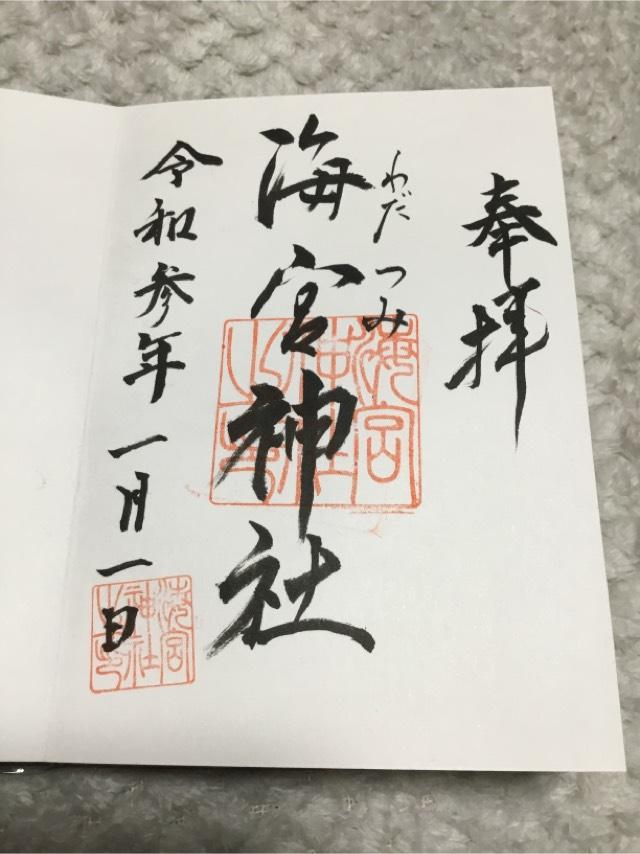 奉拝
わだつみ
海宮神社
海宮神社之印
令和参年一月一日
海宮神社之印